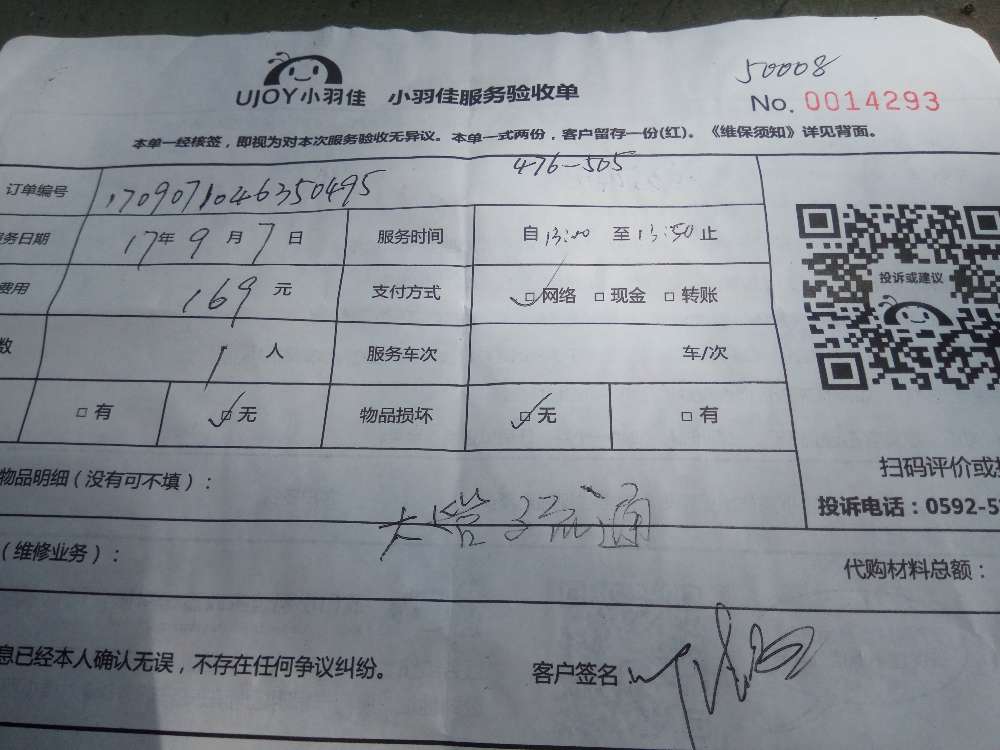 50008
UJOY小羽佳 小羽佳服务验收单
No. 0014293
本单一经核签，即视为对本次服务验收无异议。本单一式两份，客户留存一份(红)。《维保须知》详见背面。
476-505
订单编号 1709071046350495
务日期 17年9月7日 服务时间 自13:00 至13:50止
费用 169元 支付方式 □网络 □现金 □转账
数 1人 服务车次 车/次
□有 □无 物品损坏 □无 □有
投诉或建议
扫码评价或
投诉电话：0592-5
物品明细（没有可不填）：
大管子疏通
（维修业务）：
代购材料总额：
息已经本人确认无误，不存在任何争议纠纷。 客户签名